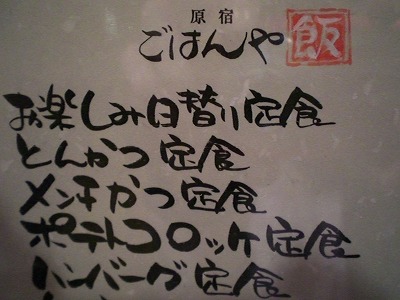 原宿
ごはんや 飯
お楽しみ日替り定食
とんかつ定食
メンチかつ定食
ポテトコロッケ定食
ハンバーグ定食